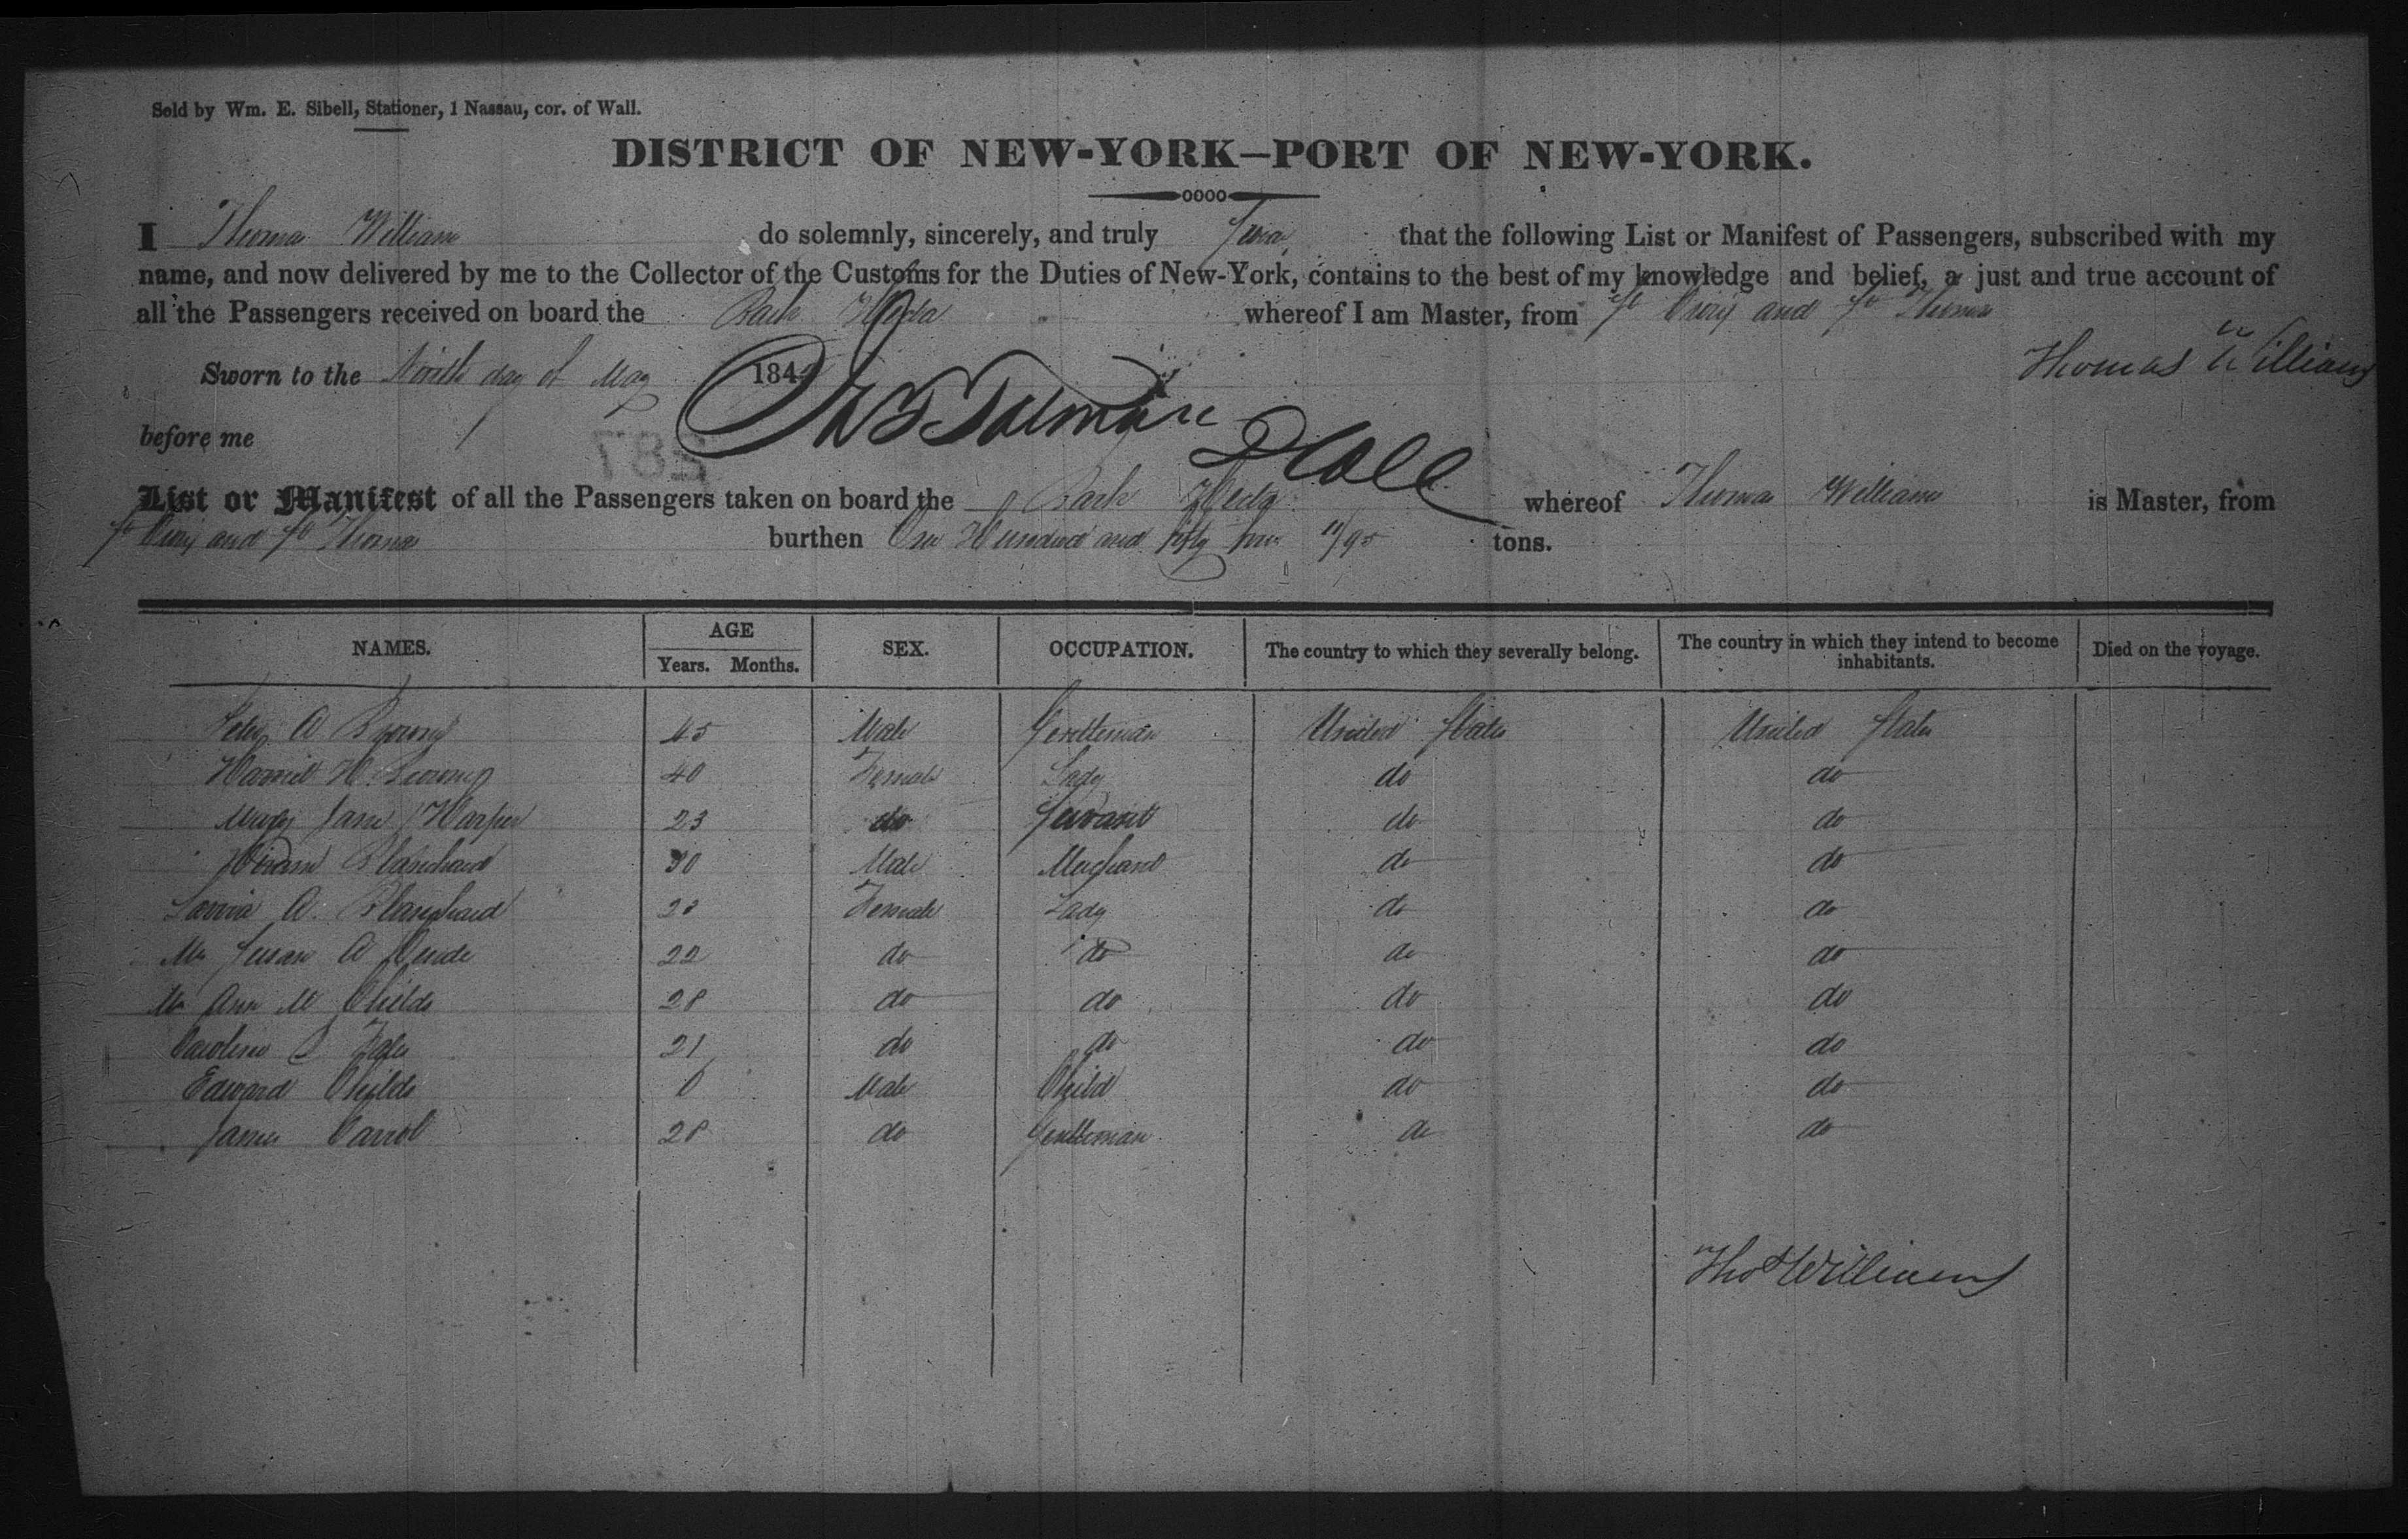 Sold by Wm. E. Sibell, Stationer, 1 Nassau, cor. of Wall.
DISTRICT OF NEW-YORK—PORT OF NEW-YORK.
I Thomas Williams do solemnly, sincerely, and truly Swear that the following List or Manifest of Passengers, subscribed with my
name, and now delivered by me to the Collector of the Customs for the Duties of New-York, contains to the best of my knowledge and belief, a just and true account of
all the Passengers received on board the Bark whereof I am Master, from St Croix and St Thomas
Thomas Williams
Sworn to the Ninth day of May 184
before me
List or Manifest of all the Passengers taken on board the Bark whereof Thomas Williams is Master, from
St Croix and St Thomas burthen One Hundred and fifty 11/95 tons.
NAMES. AGE Years. Months. SEX. OCCUPATION. The country to which they severally belong. The country in which they intend to become inhabitants. Died on the voyage.
A 45 Male Gentleman United States United States
Harriet H. 40 Female Lady do do
Jane Harper 23 do Servant do do
Hiram Blanchard 30 Male Merchant do do
A. Blanchard Female Lady do do
Susan A 22 do do do do
Ann M Childs 28 do do do do
Caroline 21 do do do do
Edward Childs 6 Male Child do do
James Carrol 28 do Gentleman do do
Thos Williams